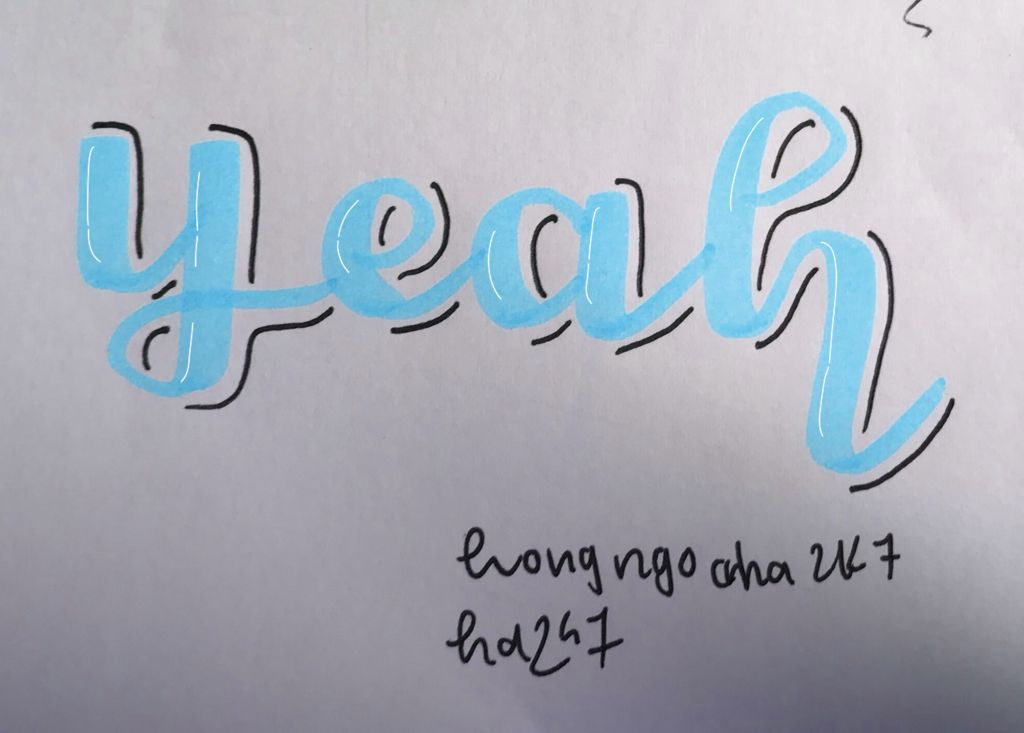 yeah
hongngocha2k7
hd247